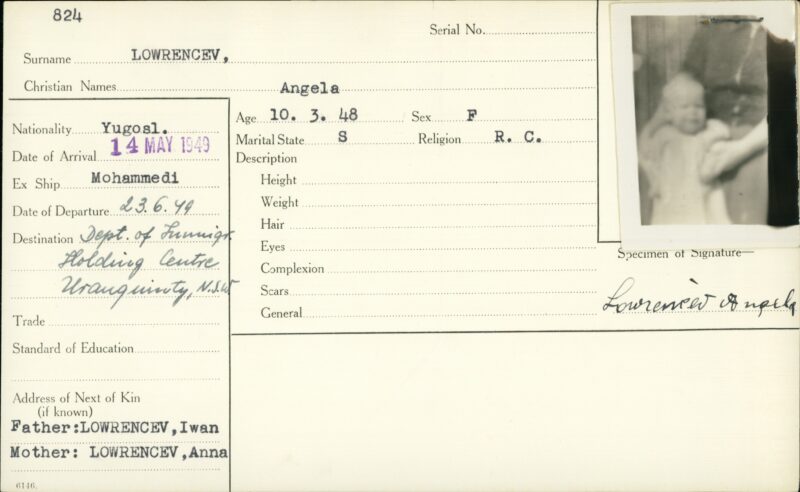 824
Serial No.
Surname LOWRENCEV,
Christian Names Angela
Nationality Yugosl.
Date of Arrival 14 MAY 1949
Ex Ship Mohammedi
Date of Departure 23.6.49
Destination Dept. of Immigr.
Holding Centre
Uranquinty, N.S.W
Trade
Standard of Education
Address of Next of Kin
(if known)
Father:LOWRENCEV,Iwan
Mother: LOWRENCEV,Anna
6146.
Age 10. 3. 48 Sex F
Marital State S Religion R. C.
Description
Height
Weight
Hair
Eyes
Complexion
Scars
General
Specimen of Signature—
Lowrencev Angela